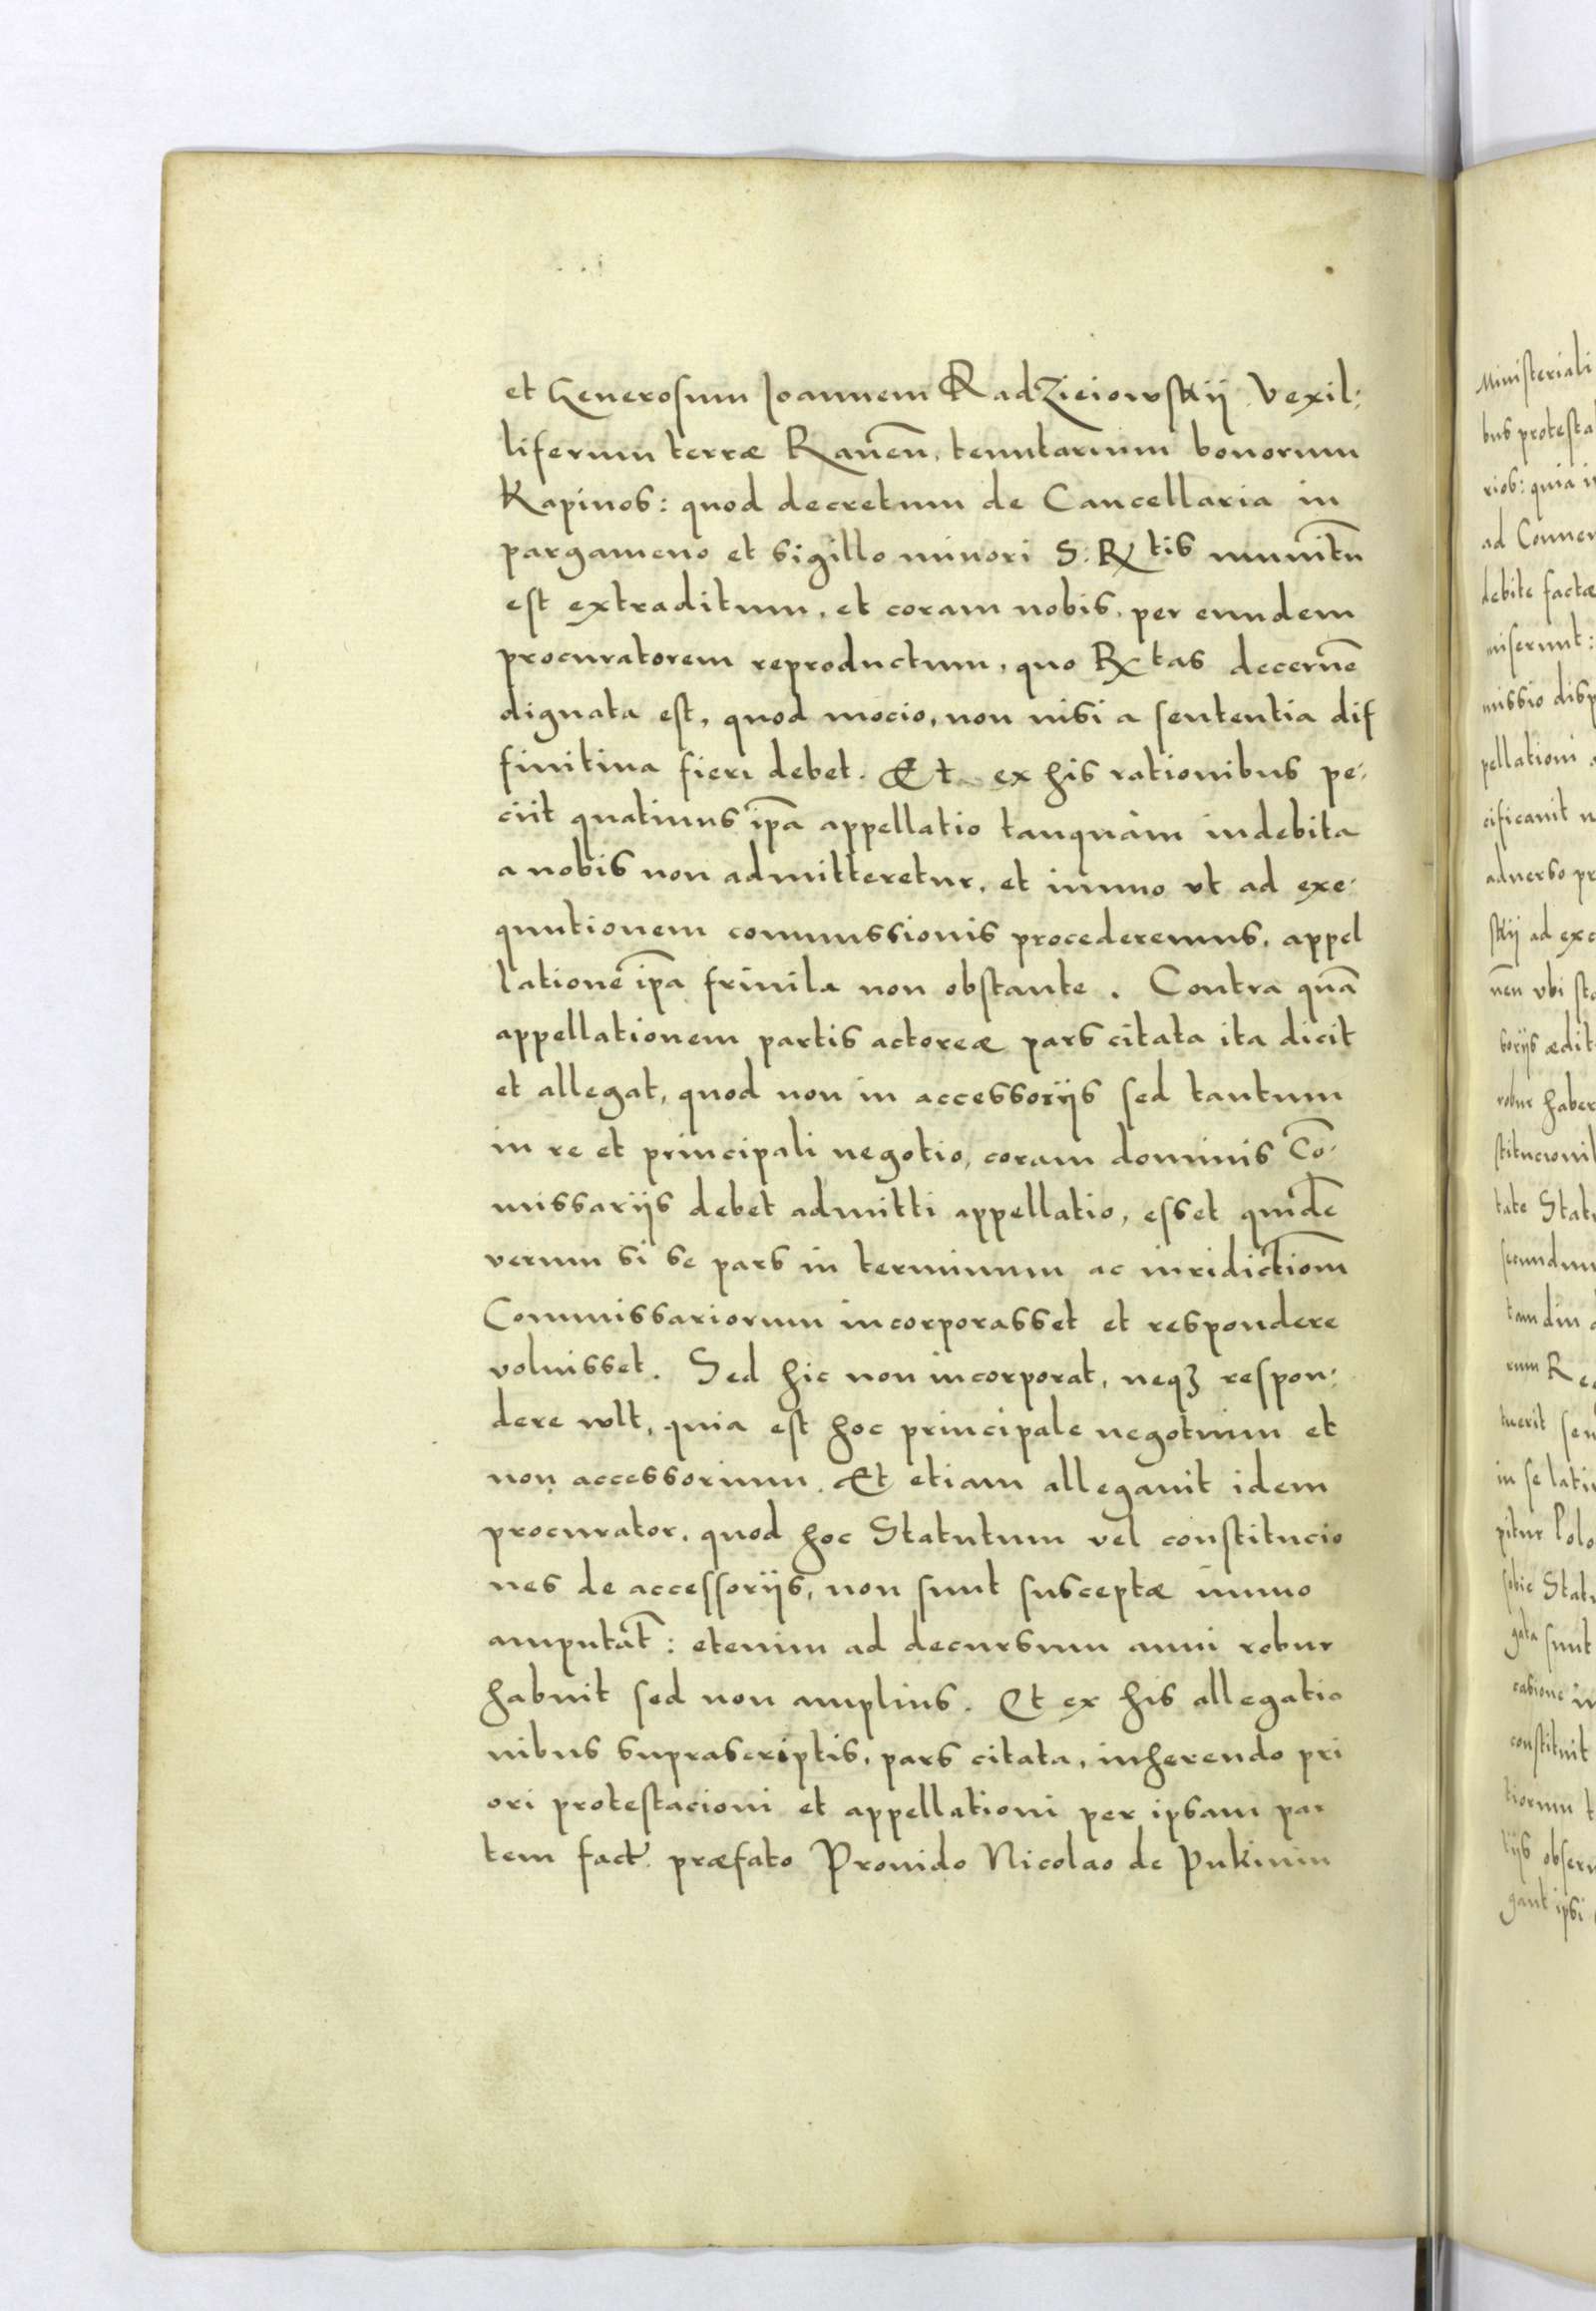 et Generosum Joannem Radzieiowskij Vexil:
liferum terræ Raueñ, tenutarium bonorum
Kapinos: quod decretum de Cancellaria in
pargameno et sigillo minori S. Rtis munitū
est extraditum, et coram nobis, per eundem
procuratorem reproductum, quo Rtas decernē
dignata est, quod mocio, non nisi a sententia dif
finitiua fieri debet. Et ex his rationibus pe:
ciit quatinus ip̄a appellatio tanquàm indebita
a nobis non admitteretur, et immo vt ad exe:
quutionem commissionis procederemus, appel
latione ip̄a friuila non obstante. Contra quā
appellationem partis actoreæ pars citata ita dicit
et allegat, quod non in accessorijs sed tantum
in re et principali negotio, coram dominis Cō:
missarijs debet admitti appellatio, esset quidē
verum si se pars in terminum ac iuridictiom̄
Commissariorum incorporasset et respondere
voluisset. Sed hic non incorporat, neqꝫ respon:
dere wlt, quia est hoc principale negotium et
non accessorium. Et etiam allegauit idem
procurator, quod hoc Statutum vel constitucio
nes de accessorijs, non sunt susceptæ immo
amputat̄: etenim ad decursum anni robur
habuit sed non amplius. Et ex his allegatio
nibus suprascriptis, pars citata, inherendo pri
ori protestacioni et appellationi per ipsam par
tem fact. præfato Prouido Nicolao de Pukinin
Ministeriali
bus protesta
rios: quia i
ad Conuen
debite factæ
miserunt:
missio disp
pellationi
cificauit n
aduerso pr
skij ad exe
nen̄ vbi sta
sorijs ædit
robur haber
stitucionib
tate Stat
secundum
tam diu
rum Re
tuerit sen
in se lati
pitur Polo
Stat
gata sunt
casione in
constituit
tiorum t
tijs obseru
gant ipsi